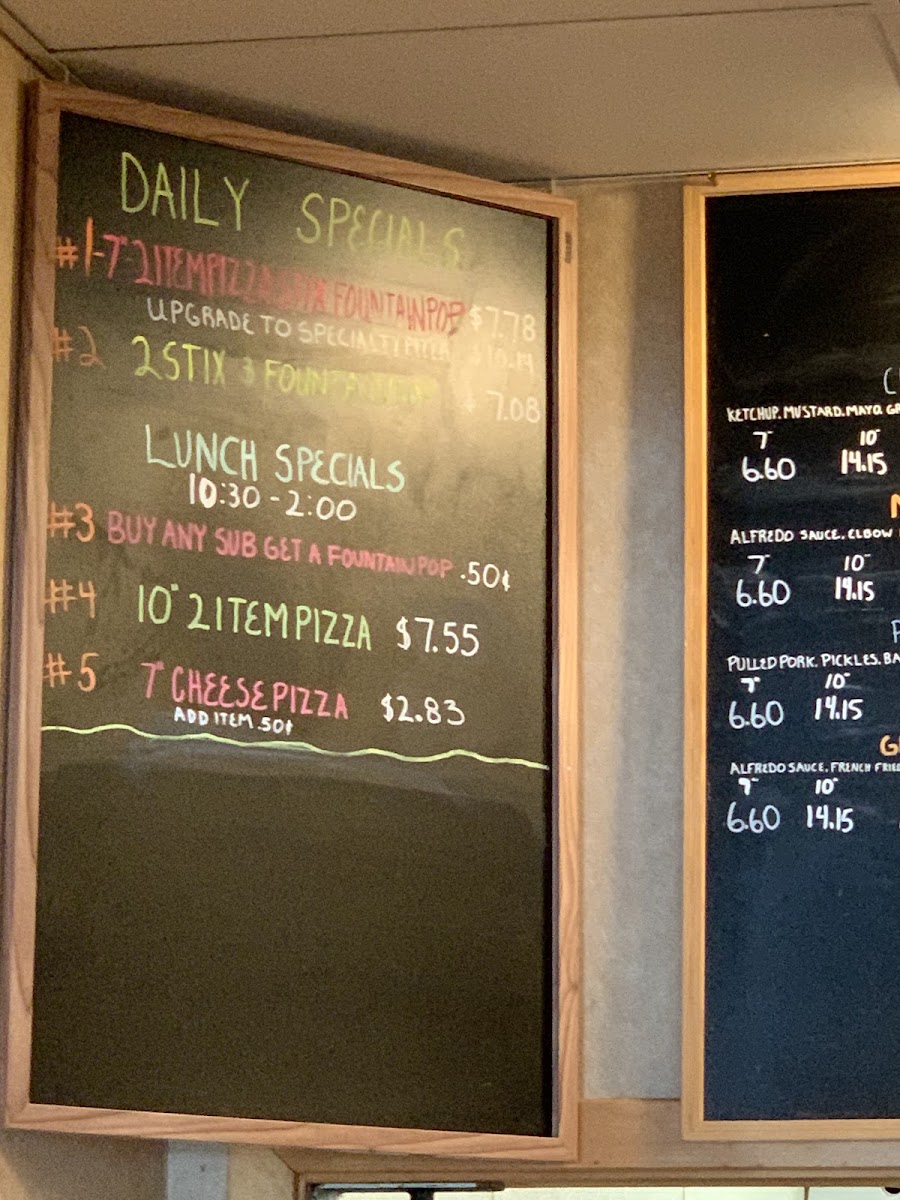 DAILY SPECIALS
#1-7" 2 ITEM PIZZA STIX FOUNTAIN POP $7.78
UPGRADE TO SPECIALTY PIZZA
#2 2 STIX & FOUNTAIN 7.08
LUNCH SPECIALS
10:30 - 2:00
#3 BUY ANY SUB GET A FOUNTAIN POP .50¢
#4 10" 2 ITEM PIZZA $7.55
#5 7" CHEESE PIZZA $2.83
ADD ITEM .50¢
KETCHUP. MUSTARD. MAYO.
7" 10"
6.60 14.15
ALFREDO SAUCE. ELBOW
7" 10"
6.60 14.15
PULLED PORK. PICKLES.
7" 10"
6.60 14.15
ALFREDO SAUCE. FRENCH
7" 10"
6.60 14.15